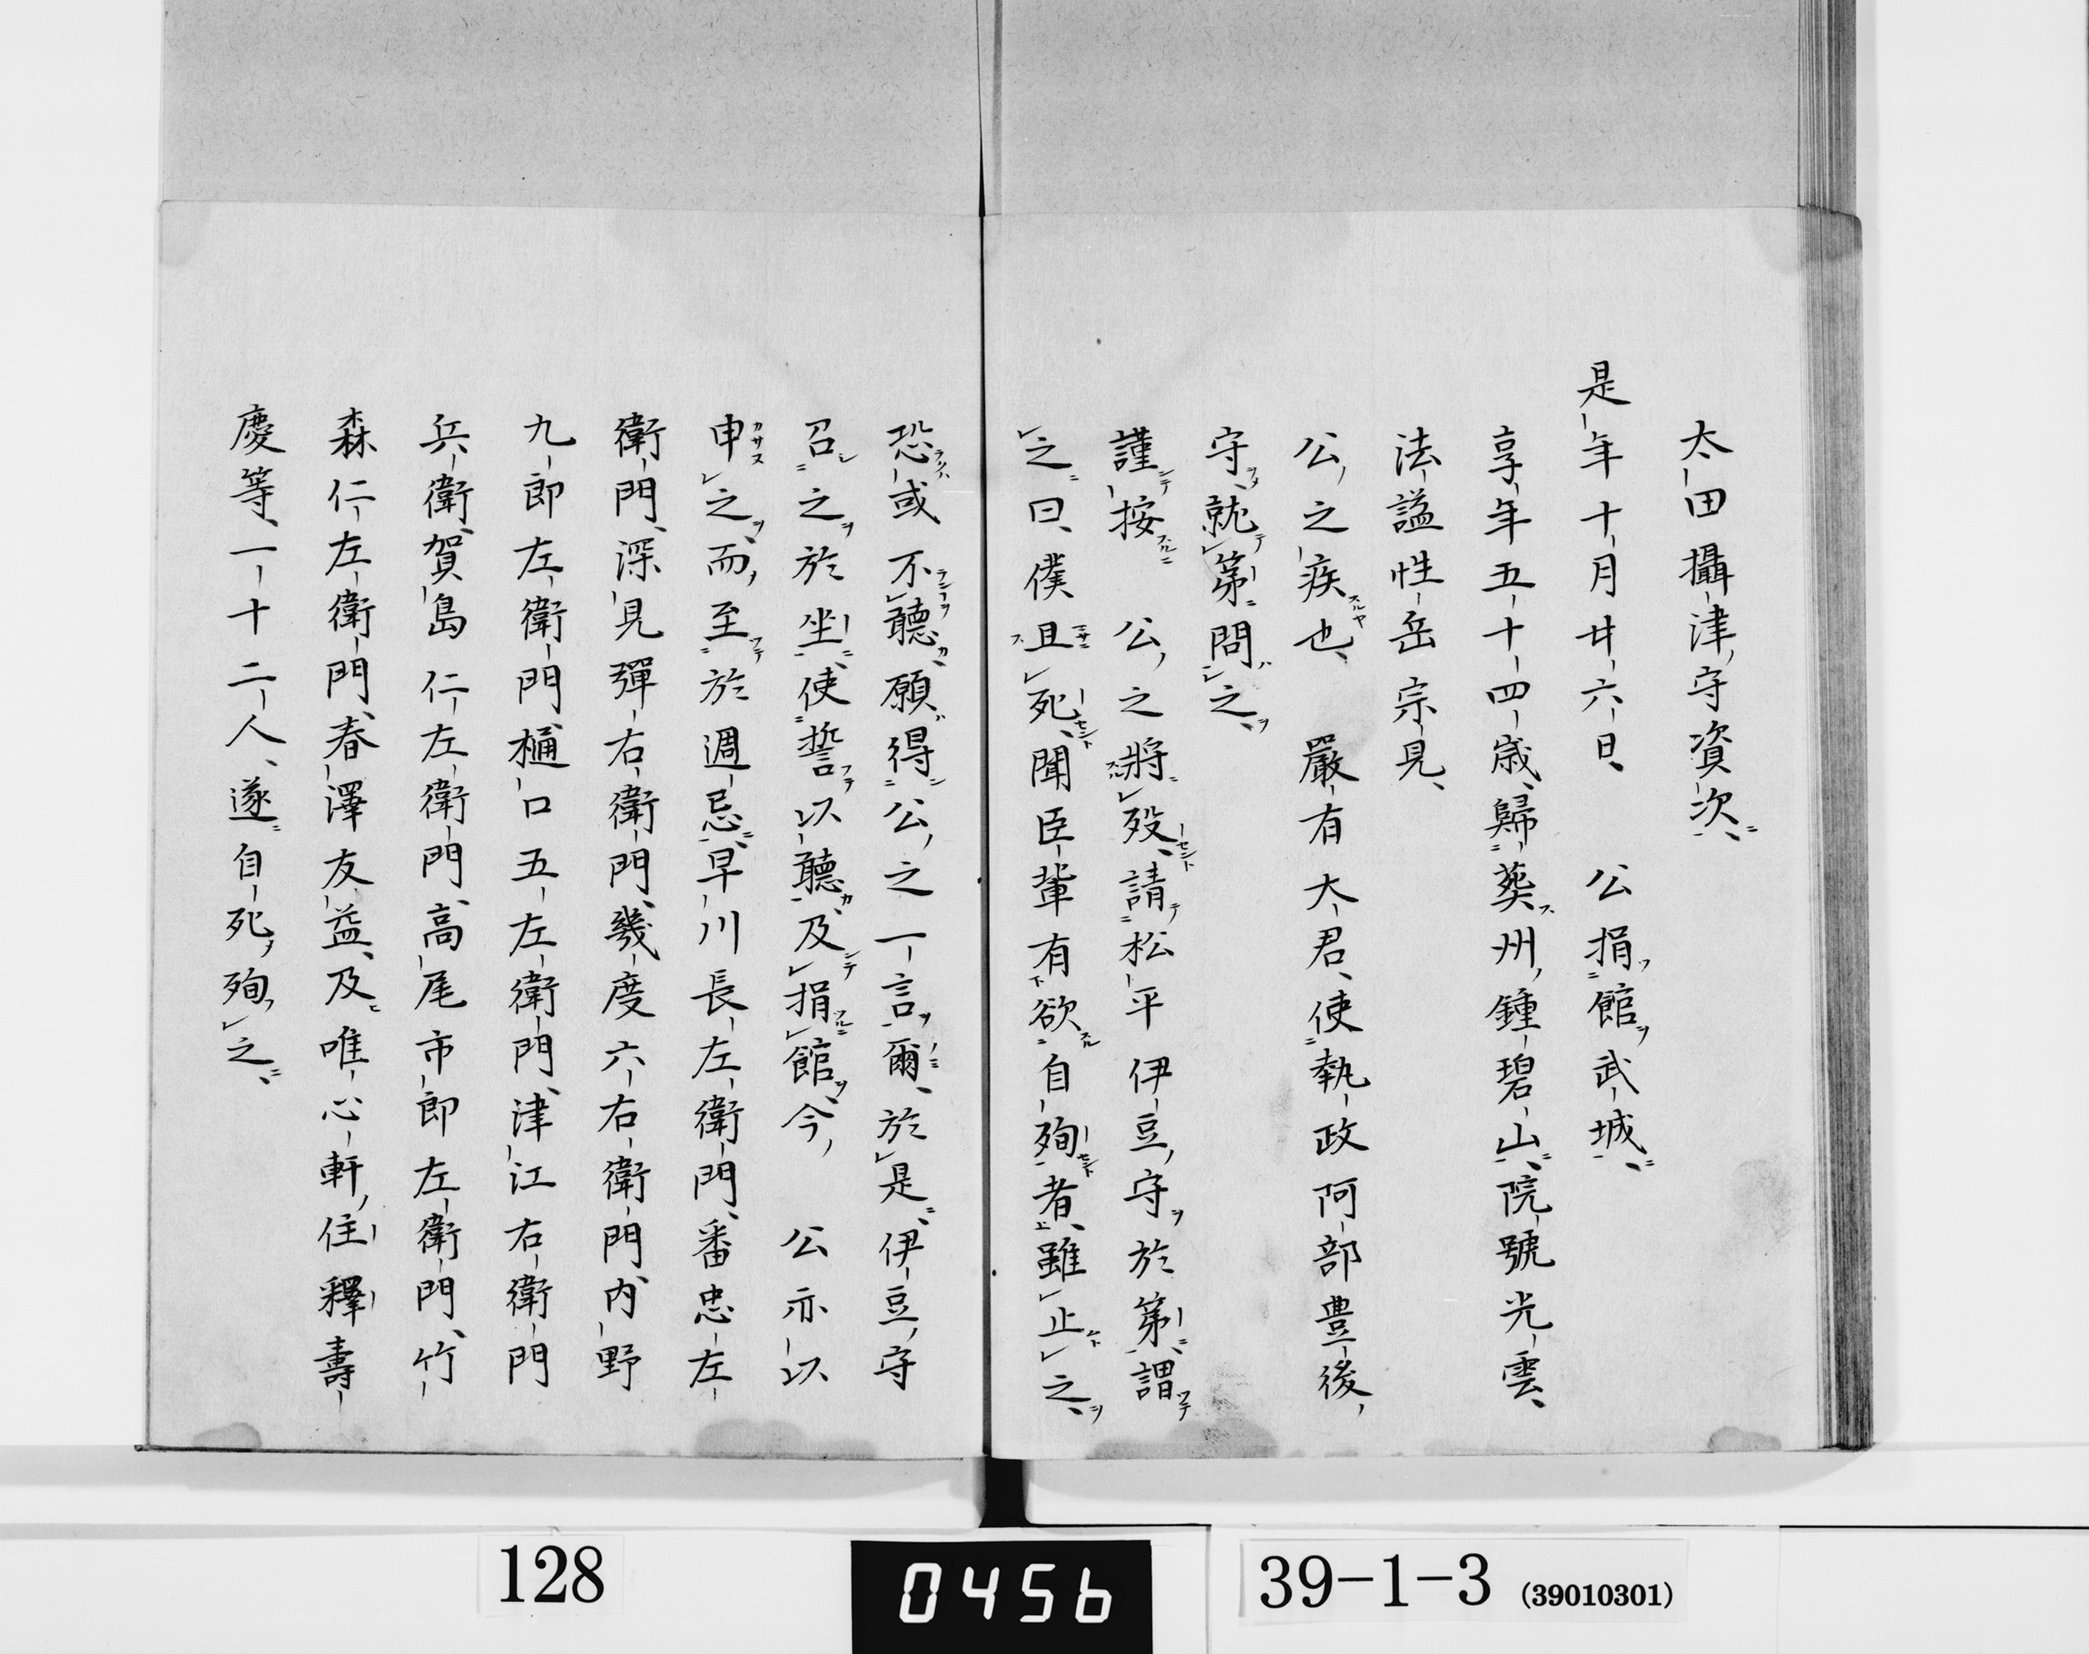 太田攝津守資次、
是年十月廿六日、　公捐館武城、
享年五十四歳、歸葬州鍾碧山、院號光雲、
法謚性岳宗見、
公之疾也、　嚴有大君、使執政阿部豊後
守、就第問之、
謹按　公之將歿、請松平伊豆守於第、謂
之曰、僕且死、聞臣輩有欲自殉者、雖止之、
恐或不聽、願得公之一言爾、於是、伊豆守
召之於坐、使誓以聽、及捐館、今　公亦以
申之、而至於週忌、早川長左衛門、番忠左
衛門、深見彈右衛門、幾度六右衛門、内野
九郎左衛門、樋口五左衛門、津江右衛門
兵衛、賀島仁左衛門、高尾市郎左衛門、竹
森仁左衛門、春澤友益、及唯心軒住釋壽
慶等、一十二人、遂自死殉之、
128
0456
39-1-3 (39010301)